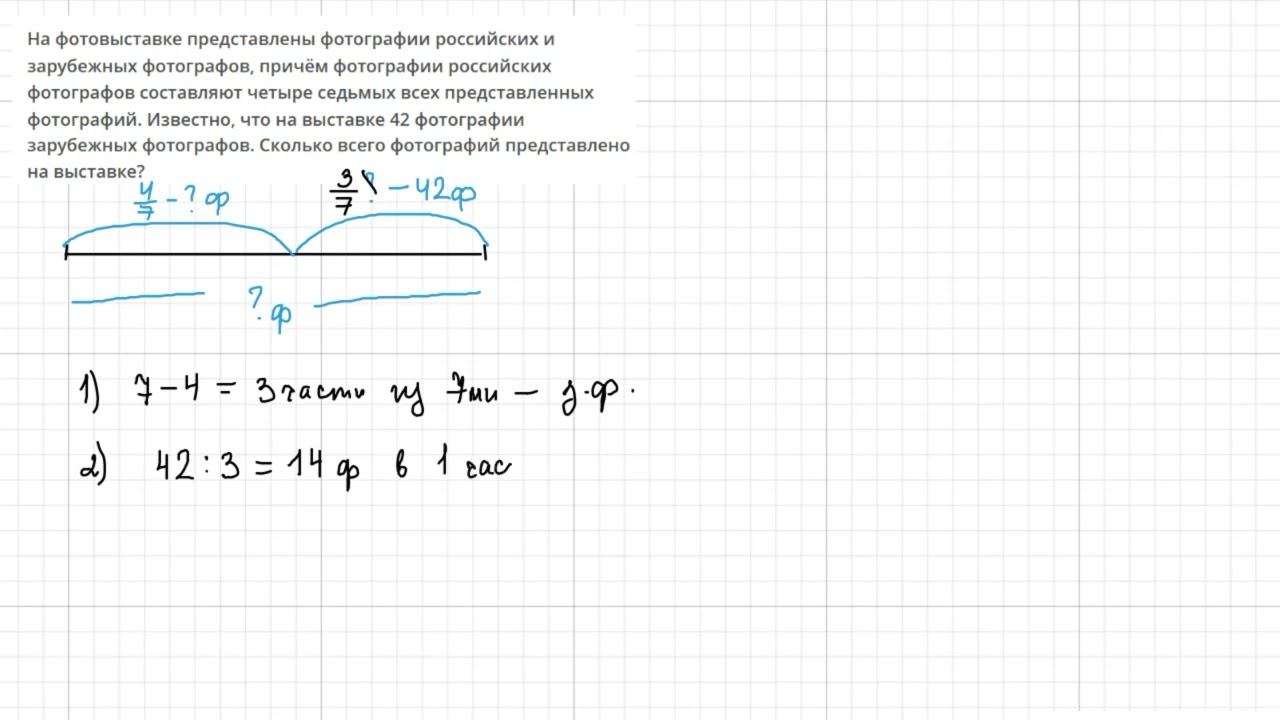 На фотовыставке представлены фотографии российских и
зарубежных фотографов, причём фотографии российских
фотографов составляют четыре седьмых всех представленных
фотографий. Известно, что на выставке 42 фотографии
зарубежных фотографов. Сколько всего фотографий представлено
на выставке?
4/7 - ? ф 3/7 ? - 42 ф
? ф
1) 7 - 4 = 3 части из 7ми - з.ф.
2) 42 : 3 = 14 ф в 1 час